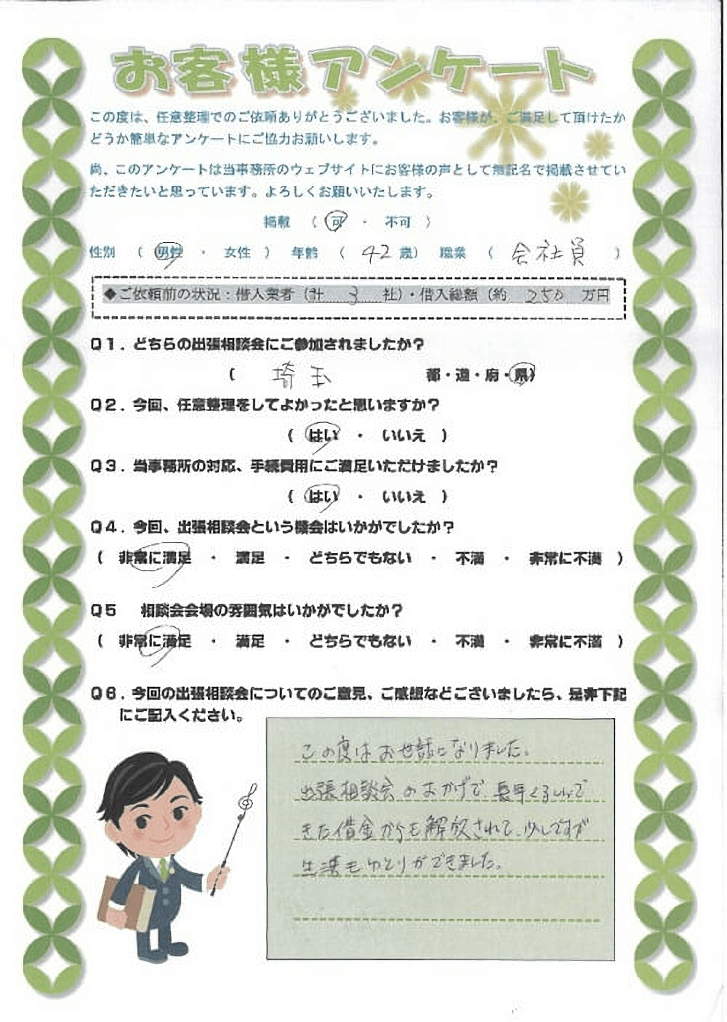 お客様アンケート
この度は、任意整理でのご依頼ありがとうございました。お客様が、ご満足して頂けたか
どうか簡単なアンケートにご協力お願いします。
尚、このアンケートは当事務所のウェブサイトにお客様の声として無記名で掲載させてい
ただきたいと思っています。よろしくお願いいたします。
掲載 （ 可 ・ 不可 ）
性別 （ 男性 ・ 女性 ） 年齢 （ 42 歳） 職業 （ 会社員 ）
◆ご依頼前の状況：借入業者（計 3 社）・借入総額（約 250 万円
Q1．どちらの出張相談会にご参加されましたか？
（ 埼玉 都・道・府・県）
Q2．今回、任意整理をしてよかったと思いますか？
（ はい ・ いいえ ）
Q3．当事務所の対応、手続費用にご満足いただけましたか？
（ はい ・ いいえ ）
Q4．今回、出張相談会という機会はいかがでしたか？
（ 非常に満足 ・ 満足 ・ どちらでもない ・ 不満 ・ 非常に不満 ）
Q5 相談会会場の雰囲気はいかがでしたか？
（ 非常に満足 ・ 満足 ・ どちらでもない ・ 不満 ・ 非常に不満 ）
Q6．今回の出張相談会についてのご意見、ご感想などございましたら、是非下記
にご記入ください。
この度はお世話になりました。
出張相談会のおかげで、長年くるしんで
きた借金からも解放されて、少しですが
生活もゆとりができました。